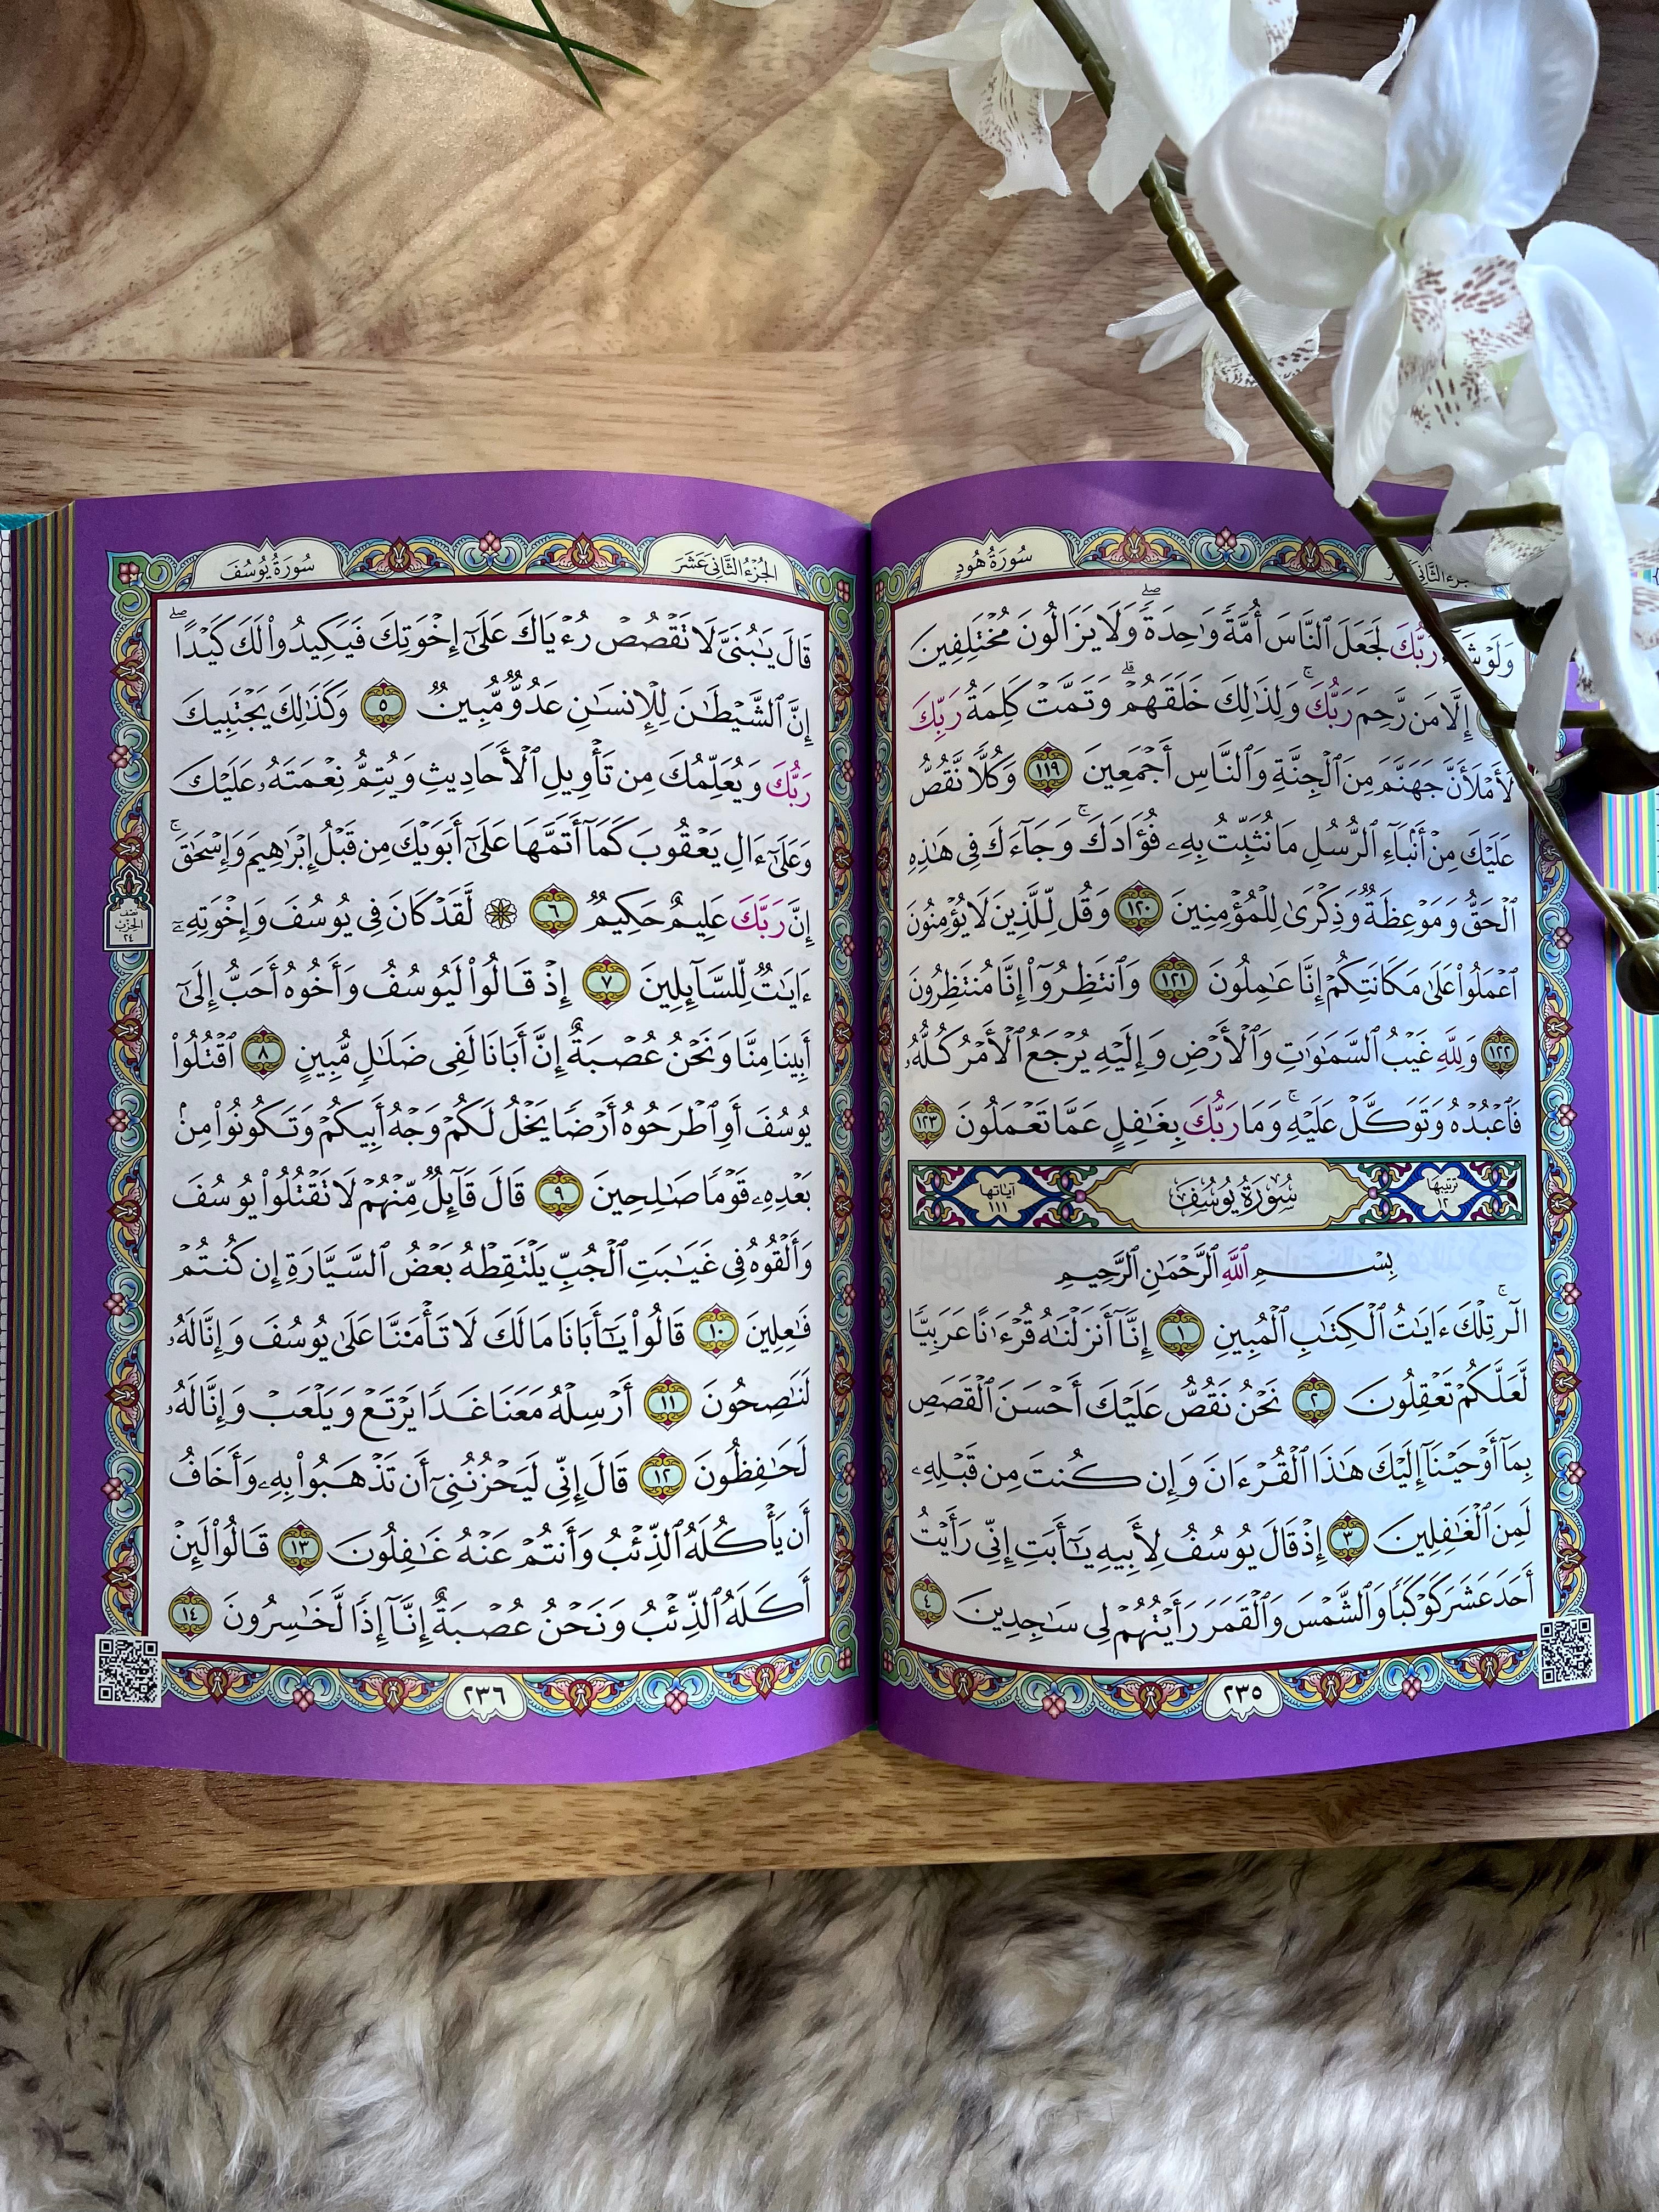 سُورَةُ هُودٍ
رَبُّكَ لَجَعَلَ ٱلنَّاسَ أُمَّةً وَٰحِدَةً ۖ وَلَا يَزَالُونَ مُخْتَلِفِينَ
إِلَّا مَن رَّحِمَ رَبُّكَ ۚ وَلِذَٰلِكَ خَلَقَهُمْ ۗ وَتَمَّتْ كَلِمَةُ رَبِّكَ
لَأَمْلَأَنَّ جَهَنَّمَ مِنَ ٱلْجِنَّةِ وَٱلنَّاسِ أَجْمَعِينَ ١١٩ وَكُلًّا نَّقُصُّ
عَلَيْكَ مِنْ أَنۢبَآءِ ٱلرُّسُلِ مَا نُثَبِّتُ بِهِۦ فُؤَادَكَ ۚ وَجَآءَكَ فِى هَٰذِهِ
ٱلْحَقُّ وَمَوْعِظَةٌ وَذِكْرَىٰ لِلْمُؤْمِنِينَ ١٢٠ وَقُل لِّلَّذِينَ لَا يُؤْمِنُونَ
ٱعْمَلُوا۟ عَلَىٰ مَكَانَتِكُمْ إِنَّا عَٰمِلُونَ ١٢١ وَٱنتَظِرُوٓا۟ إِنَّا مُنتَظِرُونَ
١٢٢ وَلِلَّهِ غَيْبُ ٱلسَّمَٰوَٰتِ وَٱلْأَرْضِ وَإِلَيْهِ يُرْجَعُ ٱلْأَمْرُ كُلُّهُۥ
فَٱعْبُدْهُ وَتَوَكَّلْ عَلَيْهِ ۚ وَمَا رَبُّكَ بِغَٰفِلٍ عَمَّا تَعْمَلُونَ ١٢٣
ترتيبها ١٢ سُورَةُ يُوسُفَ آياتها ١١١
بِسْمِ ٱللَّهِ ٱلرَّحْمَٰنِ ٱلرَّحِيمِ
الٓر ۚ تِلْكَ ءَايَٰتُ ٱلْكِتَٰبِ ٱلْمُبِينِ ١ إِنَّآ أَنزَلْنَٰهُ قُرْءَٰنًا عَرَبِيًّا
لَّعَلَّكُمْ تَعْقِلُونَ ٢ نَحْنُ نَقُصُّ عَلَيْكَ أَحْسَنَ ٱلْقَصَصِ
بِمَآ أَوْحَيْنَآ إِلَيْكَ هَٰذَا ٱلْقُرْءَانَ وَإِن كُنتَ مِن قَبْلِهِۦ
لَمِنَ ٱلْغَٰفِلِينَ ٣ إِذْ قَالَ يُوسُفُ لِأَبِيهِ يَٰٓأَبَتِ إِنِّى رَأَيْتُ
أَحَدَ عَشَرَ كَوْكَبًا وَٱلشَّمْسَ وَٱلْقَمَرَ رَأَيْتُهُمْ لِى سَٰجِدِينَ ٤
٢٣٥
الجُزْءُ الثَّانِي عَشَرَ سُورَةُ يُوسُفَ
قَالَ يَٰبُنَىَّ لَا تَقْصُصْ رُءْيَاكَ عَلَىٰٓ إِخْوَتِكَ فَيَكِيدُوا۟ لَكَ كَيْدًا ۖ
إِنَّ ٱلشَّيْطَٰنَ لِلْإِنسَٰنِ عَدُوٌّ مُّبِينٌ ٥ وَكَذَٰلِكَ يَجْتَبِيكَ
رَبُّكَ وَيُعَلِّمُكَ مِن تَأْوِيلِ ٱلْأَحَادِيثِ وَيُتِمُّ نِعْمَتَهُۥ عَلَيْكَ
وَعَلَىٰٓ ءَالِ يَعْقُوبَ كَمَآ أَتَمَّهَا عَلَىٰٓ أَبَوَيْكَ مِن قَبْلُ إِبْرَٰهِيمَ وَإِسْحَٰقَ ۚ
إِنَّ رَبَّكَ عَلِيمٌ حَكِيمٌ ٦ ۞ لَّقَدْ كَانَ فِى يُوسُفَ وَإِخْوَتِهِۦٓ
ءَايَٰتٌ لِّلسَّآئِلِينَ ٧ إِذْ قَالُوا۟ لَيُوسُفُ وَأَخُوهُ أَحَبُّ إِلَىٰٓ
أَبِينَا مِنَّا وَنَحْنُ عُصْبَةٌ إِنَّ أَبَانَا لَفِى ضَلَٰلٍ مُّبِينٍ ٨ ٱقْتُلُوا۟
يُوسُفَ أَوِ ٱطْرَحُوهُ أَرْضًا يَخْلُ لَكُمْ وَجْهُ أَبِيكُمْ وَتَكُونُوا۟ مِنۢ
بَعْدِهِۦ قَوْمًا صَٰلِحِينَ ٩ قَالَ قَآئِلٌ مِّنْهُمْ لَا تَقْتُلُوا۟ يُوسُفَ
وَأَلْقُوهُ فِى غَيَٰبَتِ ٱلْجُبِّ يَلْتَقِطْهُ بَعْضُ ٱلسَّيَّارَةِ إِن كُنتُمْ
فَٰعِلِينَ ١٠ قَالُوا۟ يَٰٓأَبَانَا مَا لَكَ لَا تَأْمَ۫نَّا عَلَىٰ يُوسُفَ وَإِنَّا لَهُۥ
لَنَٰصِحُونَ ١١ أَرْسِلْهُ مَعَنَا غَدًا يَرْتَعْ وَيَلْعَبْ وَإِنَّا لَهُۥ
لَحَٰفِظُونَ ١٢ قَالَ إِنِّى لَيَحْزُنُنِىٓ أَن تَذْهَبُوا۟ بِهِۦ وَأَخَافُ
أَن يَأْكُلَهُ ٱلذِّئْبُ وَأَنتُمْ عَنْهُ غَٰفِلُونَ ١٣ قَالُوا۟ لَئِنْ
أَكَلَهُ ٱلذِّئْبُ وَنَحْنُ عُصْبَةٌ إِنَّآ إِذًا لَّخَٰسِرُونَ ١٤
نصف
الحزب
٢٤
٢٣٦